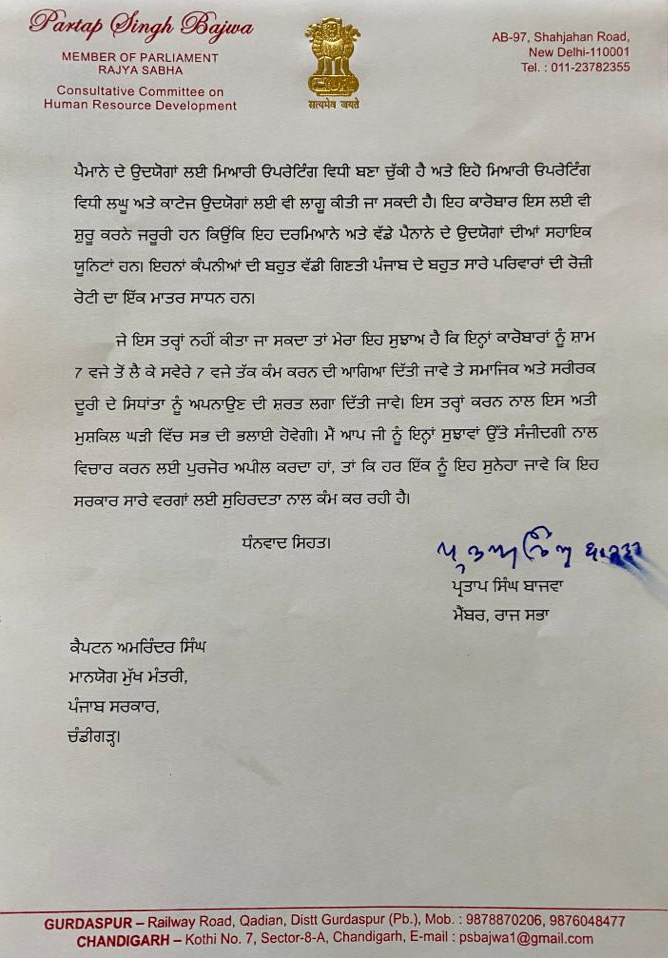 Partap Singh Bajwa
MEMBER OF PARLIAMENT
RAJYA SABHA
Consultative Committee on
Human Resource Development
सत्यमेव जयते
AB-97, Shahjahan Road,
New Delhi-110001
Tel. : 011-23782355
ਪੈਮਾਨੇ ਦੇ ਉਦਯੋਗਾਂ ਲਈ ਮਿਆਰੀ ਓਪਰੇਟਿੰਗ ਵਿਧੀ ਬਣਾ ਚੁੱਕੀ ਹੈ ਅਤੇ ਇਹੋ ਮਿਆਰੀ ਓਪਰੇਟਿੰਗ
ਵਿਧੀ ਲਘੂ ਅਤੇ ਕਾਟੇਜ ਉਦਯੋਗਾਂ ਲਈ ਵੀ ਲਾਗੂ ਕੀਤੀ ਜਾ ਸਕਦੀ ਹੈ। ਇਹ ਕਾਰੋਬਾਰ ਇਸ ਲਈ ਵੀ
ਸ਼ੁਰੂ ਕਰਨੇ ਜਰੂਰੀ ਹਨ ਕਿਉਂਕਿ ਇਹ ਦਰਮਿਆਨੇ ਅਤੇ ਵੱਡੇ ਪੈਨਾਨੇ ਦੇ ਉਦਯੋਗਾਂ ਦੀਆਂ ਸਹਾਇਕ
ਯੂਨਿਟਾਂ ਹਨ। ਇਹਨਾਂ ਕੰਪਨੀਆਂ ਦੀ ਬਹੁਤ ਵੱਡੀ ਗਿਣਤੀ ਪੰਜਾਬ ਦੇ ਬਹੁਤ ਸਾਰੇ ਪਰਿਵਾਰਾਂ ਦੀ ਰੋਜ਼ੀ
ਰੋਟੀ ਦਾ ਇੱਕ ਮਾਤਰ ਸਾਧਨ ਹਨ।
ਜੇ ਇਸ ਤਰ੍ਹਾਂ ਨਹੀਂ ਕੀਤਾ ਜਾ ਸਕਦਾ ਤਾਂ ਮੇਰਾ ਇਹ ਸੁਝਾਅ ਹੈ ਕਿ ਇਨ੍ਹਾਂ ਕਾਰੋਬਾਰਾਂ ਨੂੰ ਸ਼ਾਮ
7 ਵਜੇ ਤੋਂ ਲੈ ਕੇ ਸਵੇਰੇ 7 ਵਜੇ ਤੱਕ ਕੰਮ ਕਰਨ ਦੀ ਆਗਿਆ ਦਿੱਤੀ ਜਾਵੇ ਤੇ ਸਮਾਜਿਕ ਅਤੇ ਸਰੀਰਕ
ਦੂਰੀ ਦੇ ਸਿਧਾਂਤਾ ਨੂੰ ਅਪਨਾਉਣ ਦੀ ਸ਼ਰਤ ਲਗਾ ਦਿੱਤੀ ਜਾਵੇ। ਇਸ ਤਰ੍ਹਾਂ ਕਰਨ ਨਾਲ ਇਸ ਅਤੀ
ਮੁਸ਼ਕਿਲ ਘੜੀ ਵਿੱਚ ਸਭ ਦੀ ਭਲਾਈ ਹੋਵੇਗੀ। ਮੈਂ ਆਪ ਜੀ ਨੂੰ ਇਨ੍ਹਾਂ ਸੁਝਾਵਾਂ ਉੱਤੇ ਸੰਜੀਦਗੀ ਨਾਲ
ਵਿਚਾਰ ਕਰਨ ਲਈ ਪੁਰਜੋਰ ਅਪੀਲ ਕਰਦਾ ਹਾਂ, ਤਾਂ ਕਿ ਹਰ ਇੱਕ ਨੂੰ ਇਹ ਸੁਨੇਹਾ ਜਾਵੇ ਕਿ ਇਹ
ਸਰਕਾਰ ਸਾਰੇ ਵਰਗਾਂ ਲਈ ਸੁਹਿਰਦਤਾ ਨਾਲ ਕੰਮ ਕਰ ਰਹੀ ਹੈ।
ਧੰਨਵਾਦ ਸਿਹਤ।
ਪ੍ਰਤਾਪ ਸਿੰਘ ਬਾਜਵਾ
ਮੈਂਬਰ, ਰਾਜ ਸਭਾ
ਕੈਪਟਨ ਅਮਰਿੰਦਰ ਸਿੰਘ
ਮਾਨਯੋਗ ਮੁੱਖ ਮੰਤਰੀ,
ਪੰਜਾਬ ਸਰਕਾਰ,
ਚੰਡੀਗੜ੍ਹ।
GURDASPUR – Railway Road, Qadian, Distt Gurdaspur (Pb.), Mob. : 9878870206, 9876048477
CHANDIGARH – Kothi No. 7, Sector-8-A, Chandigarh, E-mail : psbajwa1@gmail.com